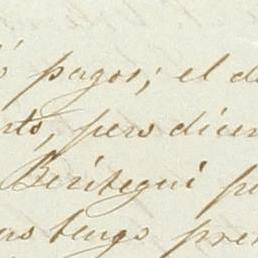 ó pagos; el d
rto, pero dicen
Beritegui p
as tengo pre